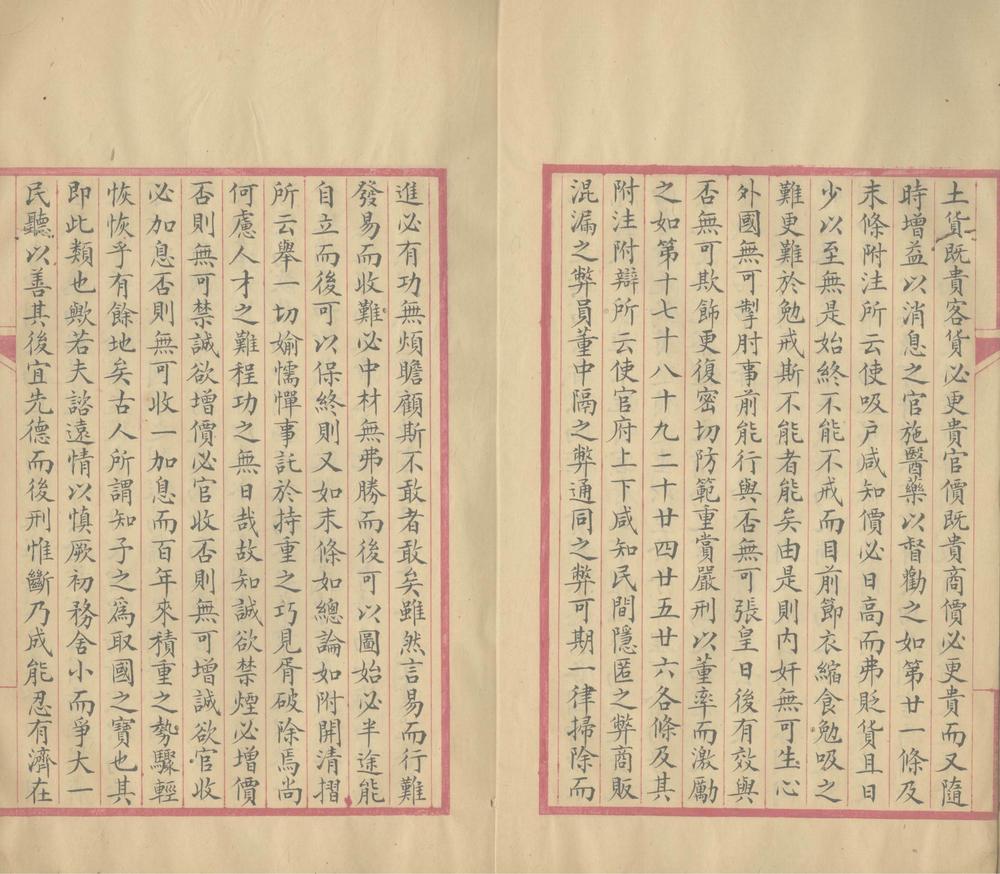 土貨既貴客貨必更貴官價既貴商價必更貴而又隨
時增益以消息之官施醫藥以督勸之如第廿一條及
末條附注所云使吸户咸知價必日高而弗貶貨且日
少以至無是始終不能不戒而目前節衣縮食勉吸之
難更難於勉戒斯不能者能矣由是則内奸無可生心
外國無可掣肘事前能行與否無可張皇日後有效與
否無可欺飾更復密切防範重賞嚴刑以董率而激勵
之如第十七十八十九二十廿四廿五廿六各條及其
附注附辯所云使官府上下咸知民間隱匿之弊商販
混漏之弊員董中隔之弊通同之弊可期一律掃除而
進必有功無煩瞻顧斯不敢者敢矣雖然言易而行難
發易而收難必中材無弗勝而後可以圖始必半途能
自立而後可以保終則又如末條如總論如附開清摺
所云舉一切媮懦憚事託於持重之巧見胥破除焉尚
何慮人才之難程功之無日哉故知誠欲禁煙必增價
否則無可禁誠欲增價必官收否則無可增誠欲官收
必加息否則無可收一加息而百年來積重之勢驟輕
恢恢乎有餘地矣古人所謂知予之為取國之寶也其
即此類也歟若夫諮遠情以慎厥初務舍小而爭大一
民聽以善其後宜先德而後刑惟斷乃成能忍有濟在